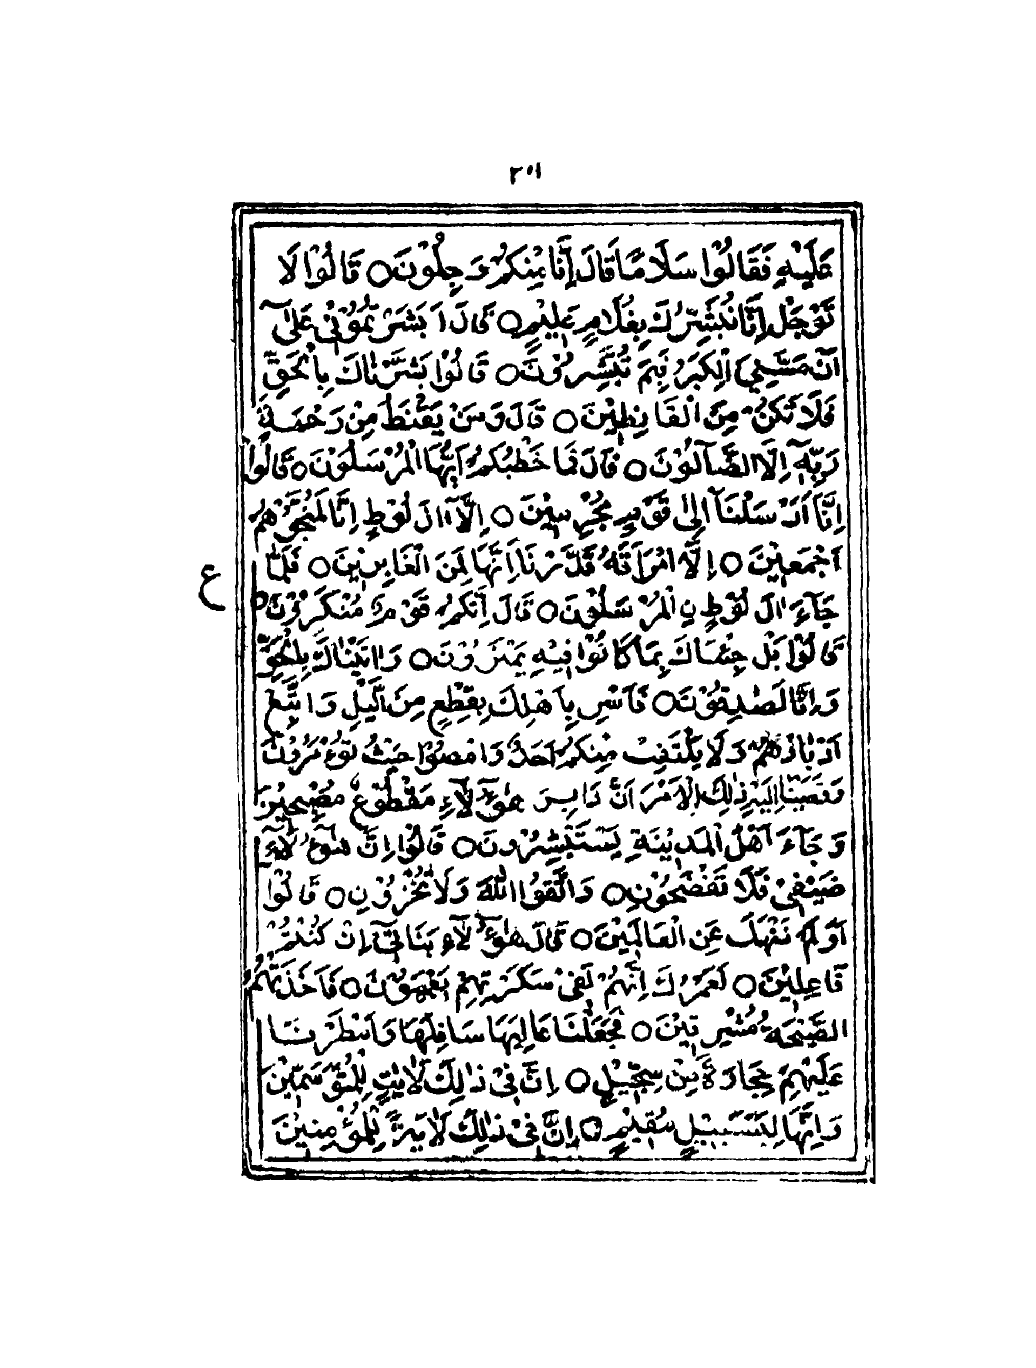 ٢٥١
عَلَيْهِ فَقَالُوْا سَلَامًا قَالَ اِنَّا مِنْكُمْ وَجِلُوْنَ ○ قَالُوْا لَا
تَوْجَلْ اِنَّا نُبَشِّرُكَ بِغُلَامٍ عَلِيْمٍ ○ قَالَ اَبَشَّرْتُمُوْنِىْ عَلٰٓى
اَنْ مَّسَّنِىَ الْكِبَرُ فَبِمَ تُبَشِّرُوْنَ ○ قَالُوْا بَشَّرْنٰكَ بِالْحَقِّ
فَلَا تَكُنْ مِّنَ الْقَانِطِيْنَ ○ قَالَ وَمَنْ يَقْنَطُ مِنْ رَحْمَةِ
رَبِّهٖٓ اِلَّا الضَّآلُّوْنَ ○ قَالَ فَمَا خَطْبُكُمْ اَيُّهَا الْمُرْسَلُوْنَ ○ قَالُوْا
اِنَّآ اُرْسِلْنَآ اِلٰى قَوْمٍ مُّجْرِمِيْنَ ○ اِلَّآ اٰلَ لُوْطٍ اِنَّا لَمُنَجُّوْهُمْ
اَجْمَعِيْنَ ○ اِلَّا امْرَاَتَهٗ قَدَّرْنَا اِنَّهَا لَمِنَ الْغَابِرِيْنَ ○ فَلَمَّا
ع
جَآءَ اٰلَ لُوْطِ نِ الْمُرْسَلُوْنَ ○ قَالَ اِنَّكُمْ قَوْمٌ مُّنْكَرُوْنَ ○
قَالُوْا بَلْ جِئْنَاكَ بِمَا كَانُوْا فِيْهِ يَمْتَرُوْنَ ○ وَاَتَيْنَاكَ بِالْحَقِّ
وَاِنَّا لَصٰدِقُوْنَ ○ فَاَسْرِ بِاَهْلِكَ بِقِطْعٍ مِّنَ الَّيْلِ وَاتَّبِعْ
اَدْبَارَهُمْ وَلَا يَلْتَفِتْ مِنْكُمْ اَحَدٌ وَّامْضُوْا حَيْثُ تُؤْمَرُوْنَ
وَقَضَيْنَا اِلَيْهِ ذٰلِكَ الْاَمْرَ اَنَّ دَابِرَ هٰٓؤُلَآءِ مَقْطُوْعٌ مُّصْبِحِيْنَ
وَجَآءَ اَهْلُ الْمَدِيْنَةِ يَسْتَبْشِرُوْنَ ○ قَالَ اِنَّ هٰٓؤُلَآءِ
ضَيْفِىْ فَلَا تَفْضَحُوْنِ ○ وَاتَّقُوا اللّٰهَ وَلَا تُخْزُوْنِ ○ قَالُوْا
اَوَلَمْ نَنْهَكَ عَنِ الْعَالَمِيْنَ ○ قَالَ هٰٓؤُلَآءِ بَنَاتِىْٓ اِنْ كُنْتُمْ
فَاعِلِيْنَ ○ لَعَمْرُكَ اِنَّهُمْ لَفِىْ سَكْرَتِهِمْ يَعْمَهُوْنَ ○ فَاَخَذَتْهُمُ
الصَّيْحَةُ مُشْرِقِيْنَ ○ فَجَعَلْنَا عَالِيَهَا سَافِلَهَا وَاَمْطَرْنَا
عَلَيْهِمْ حِجَارَةً مِّنْ سِجِّيْلٍ ○ اِنَّ فِىْ ذٰلِكَ لَاٰيٰتٍ لِّلْمُتَوَسِّمِيْنَ
وَاِنَّهَا لَبِسَبِيْلٍ مُّقِيْمٍ ○ اِنَّ فِىْ ذٰلِكَ لَاٰيَةً لِّلْمُؤْمِنِيْنَ